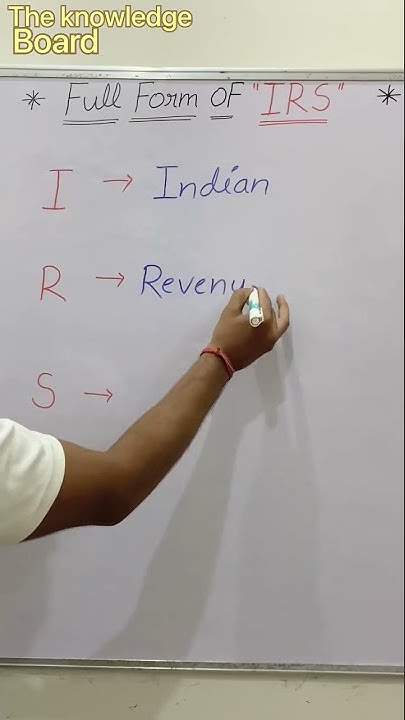 The knowledge
Board
* Full Form OF "IRS" *
I → Indian
R → Revenu
S →